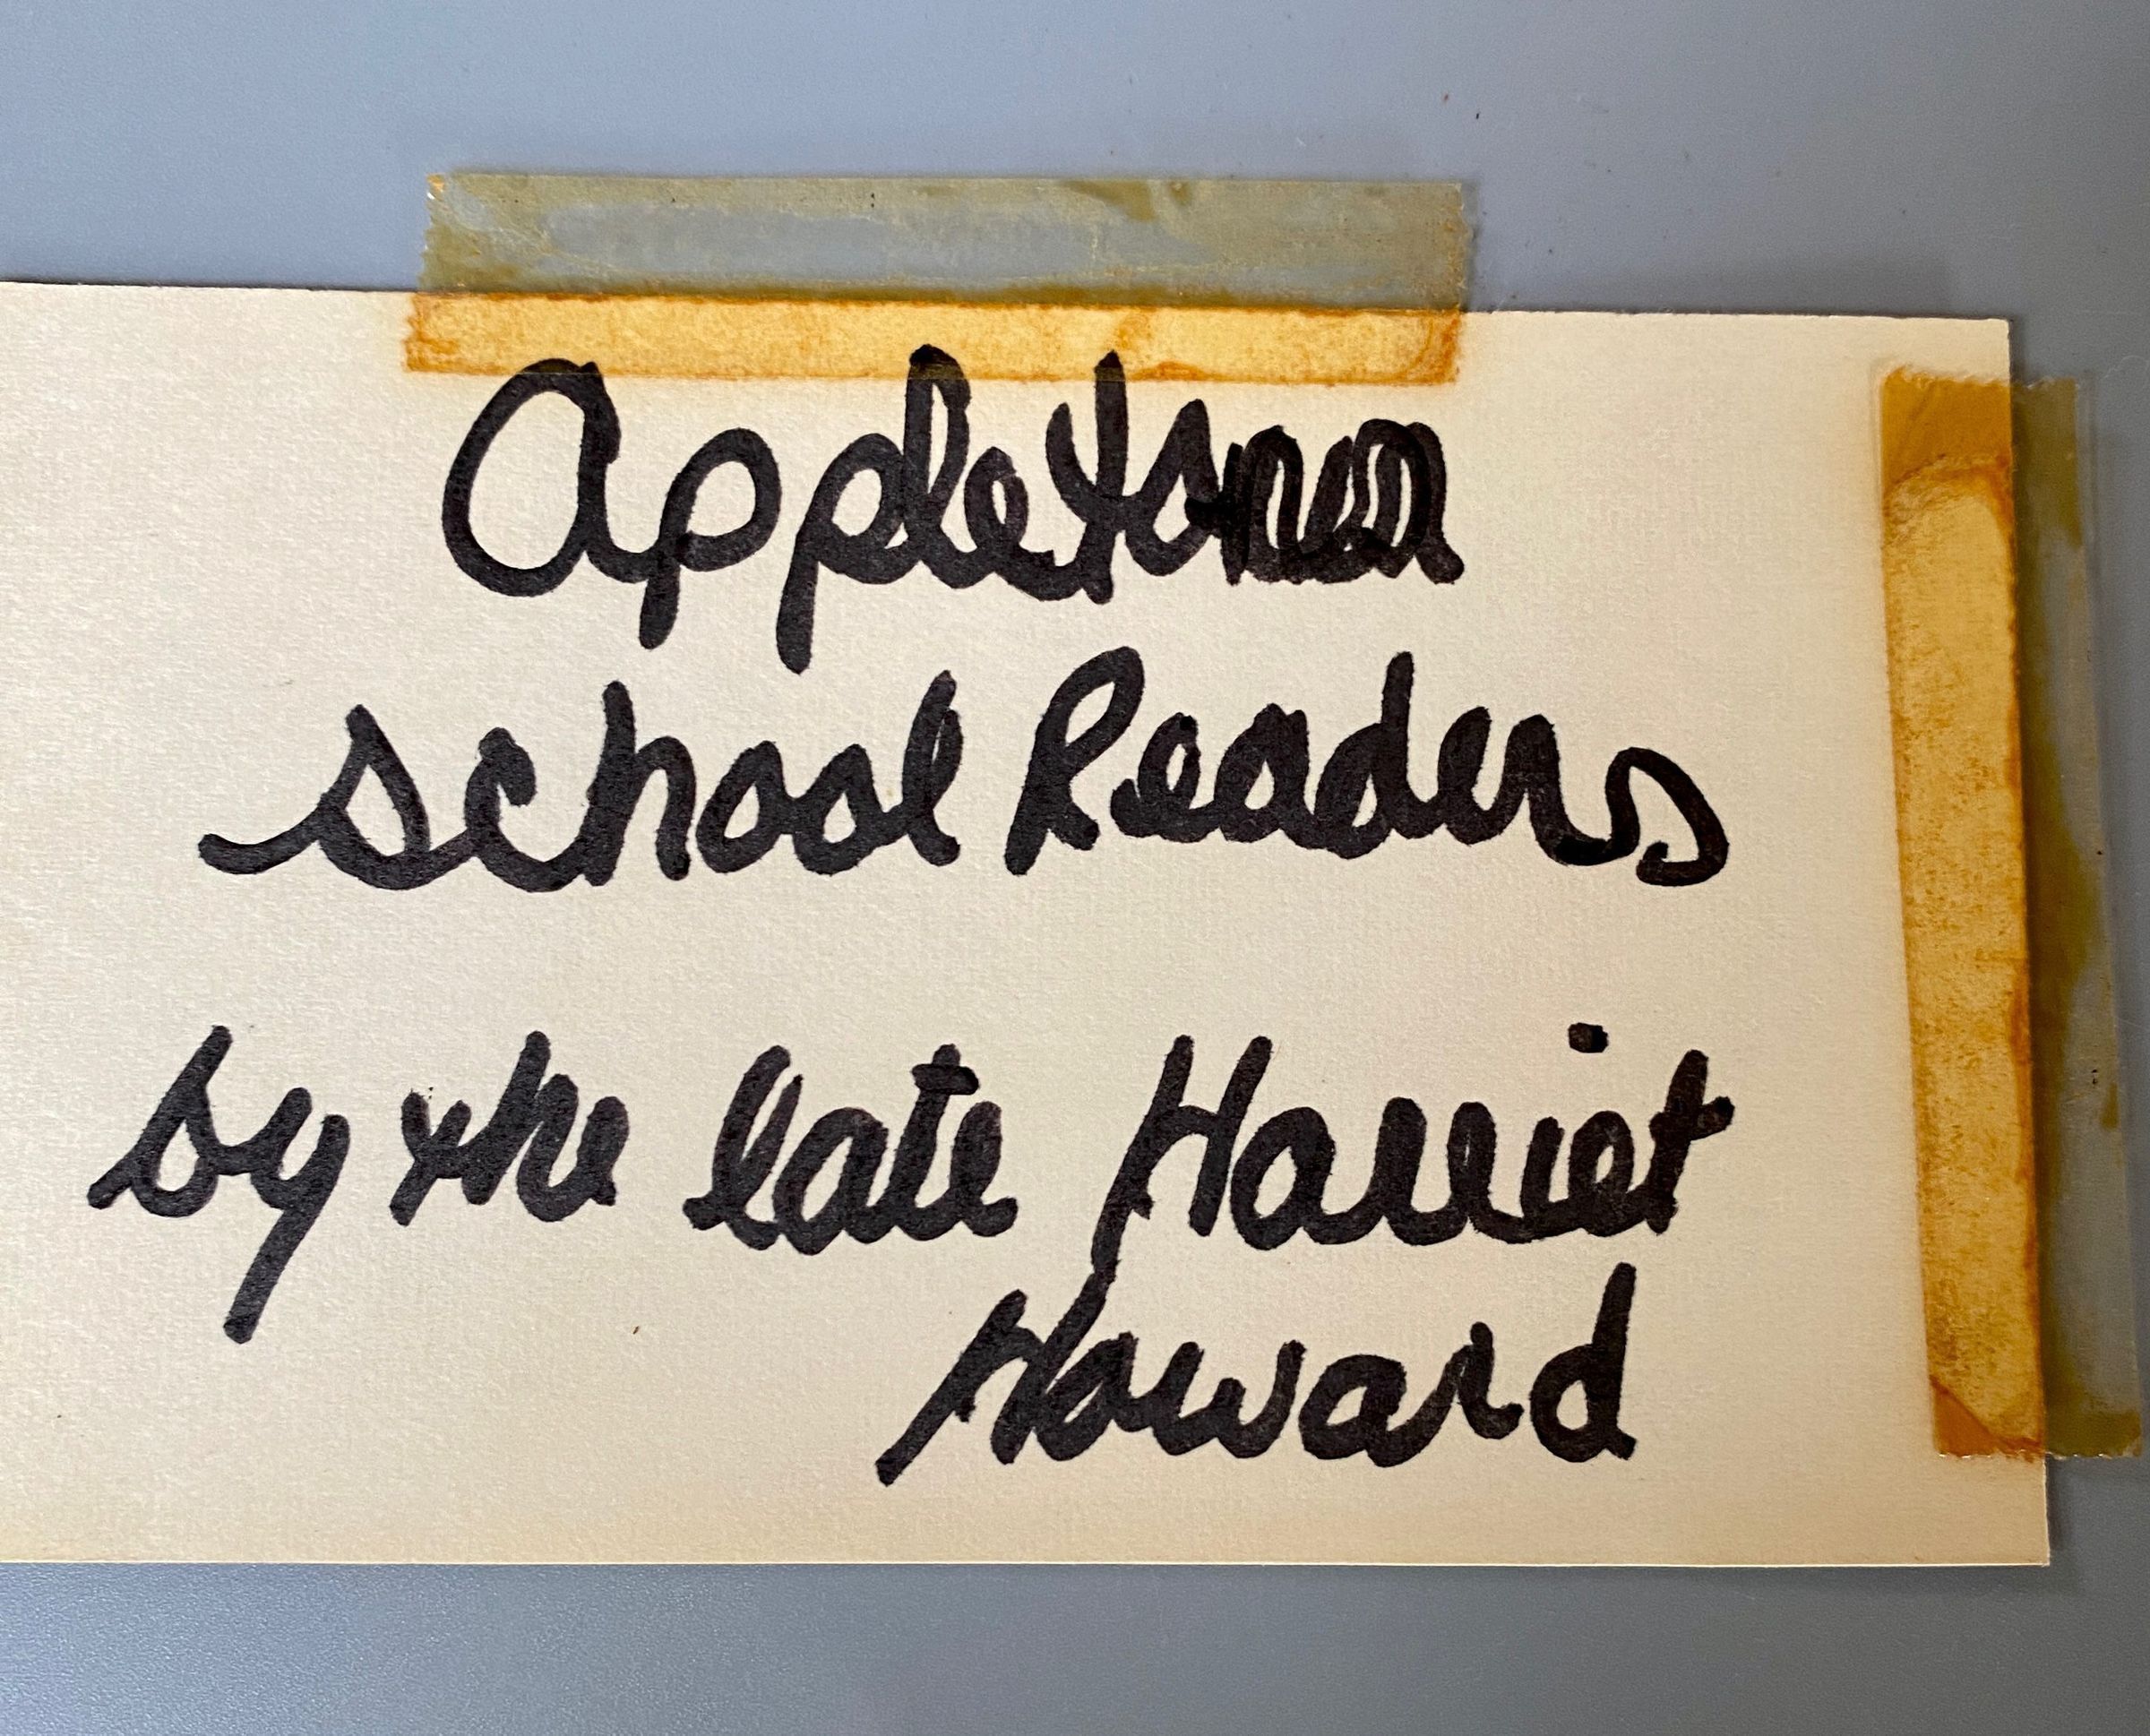 Appleton
school Readers
by the late Harriet
Howard